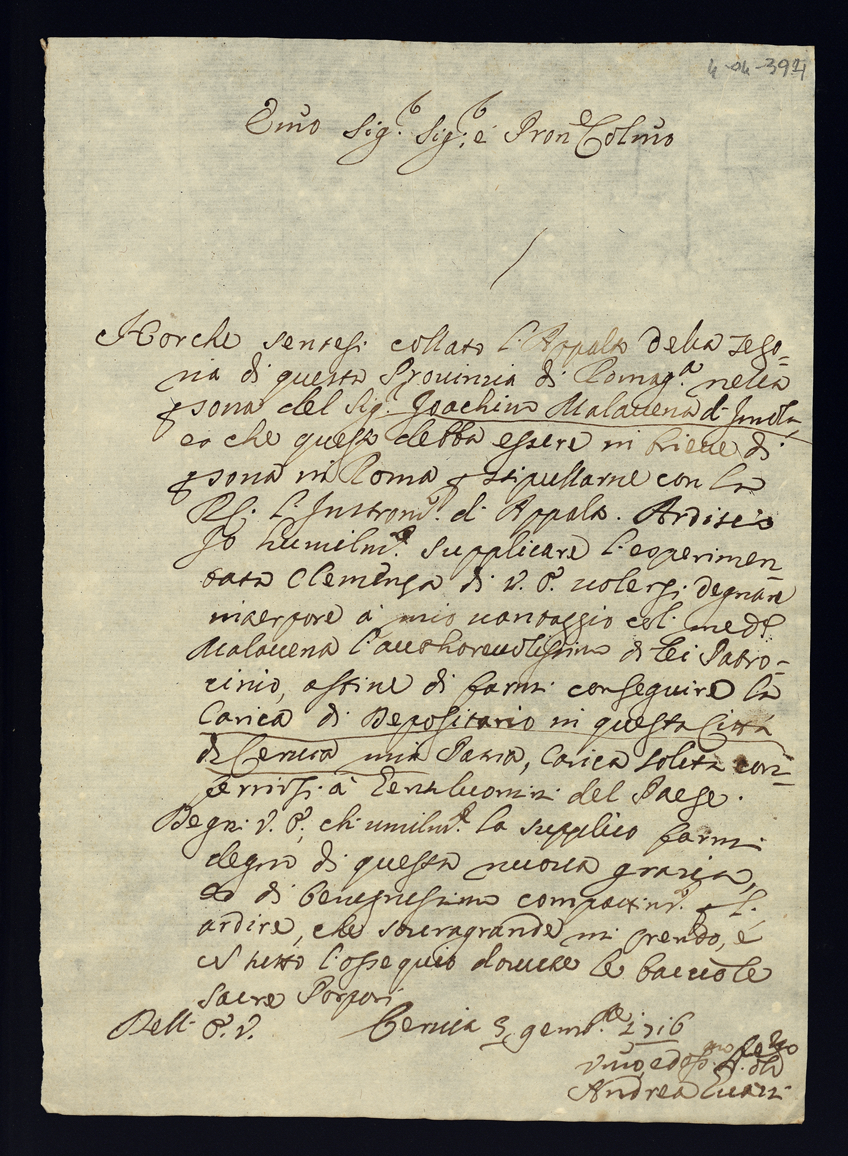 4-04-391
Emo Sig.r Sig.r é Pron Colmo
Horche sentesi collato l'Appalto della Teso=
ria di questa Provinzia di Romag.a nella
psona del Sig.r Joachino Malavena di Imola,
eo che questi debba essere in brieve di
psona in Roma p stipullarne con la
l'Instrom.o d'Appalto. Ardisco
Jo humilm.e supplicare l'esperimen
tata Clemenza di V. E. volersi degnare
interpore à mio vantaggio col med.o
Malavena l'authorevolissimo di Lei Patro-
cinio, affine di farmi conseguire la
Carica di Depositario in questa Città
di Cervia mia Patria, Carica solita con=
ferirsi à Gentiluomini del Paese.
Degni V. E., ch'umilm.e la supplico farmi
degno di questa nuova grazia,
et di benignissimo compatim.o p l'
ardire, che sovragrande mi prendo, é
con tutto l'ossequio dovute le baccio le
sacre Porpori
Dell' E. V. Cervia 3 genn.re 1716
Vmo, ed oss.mo
Andrea